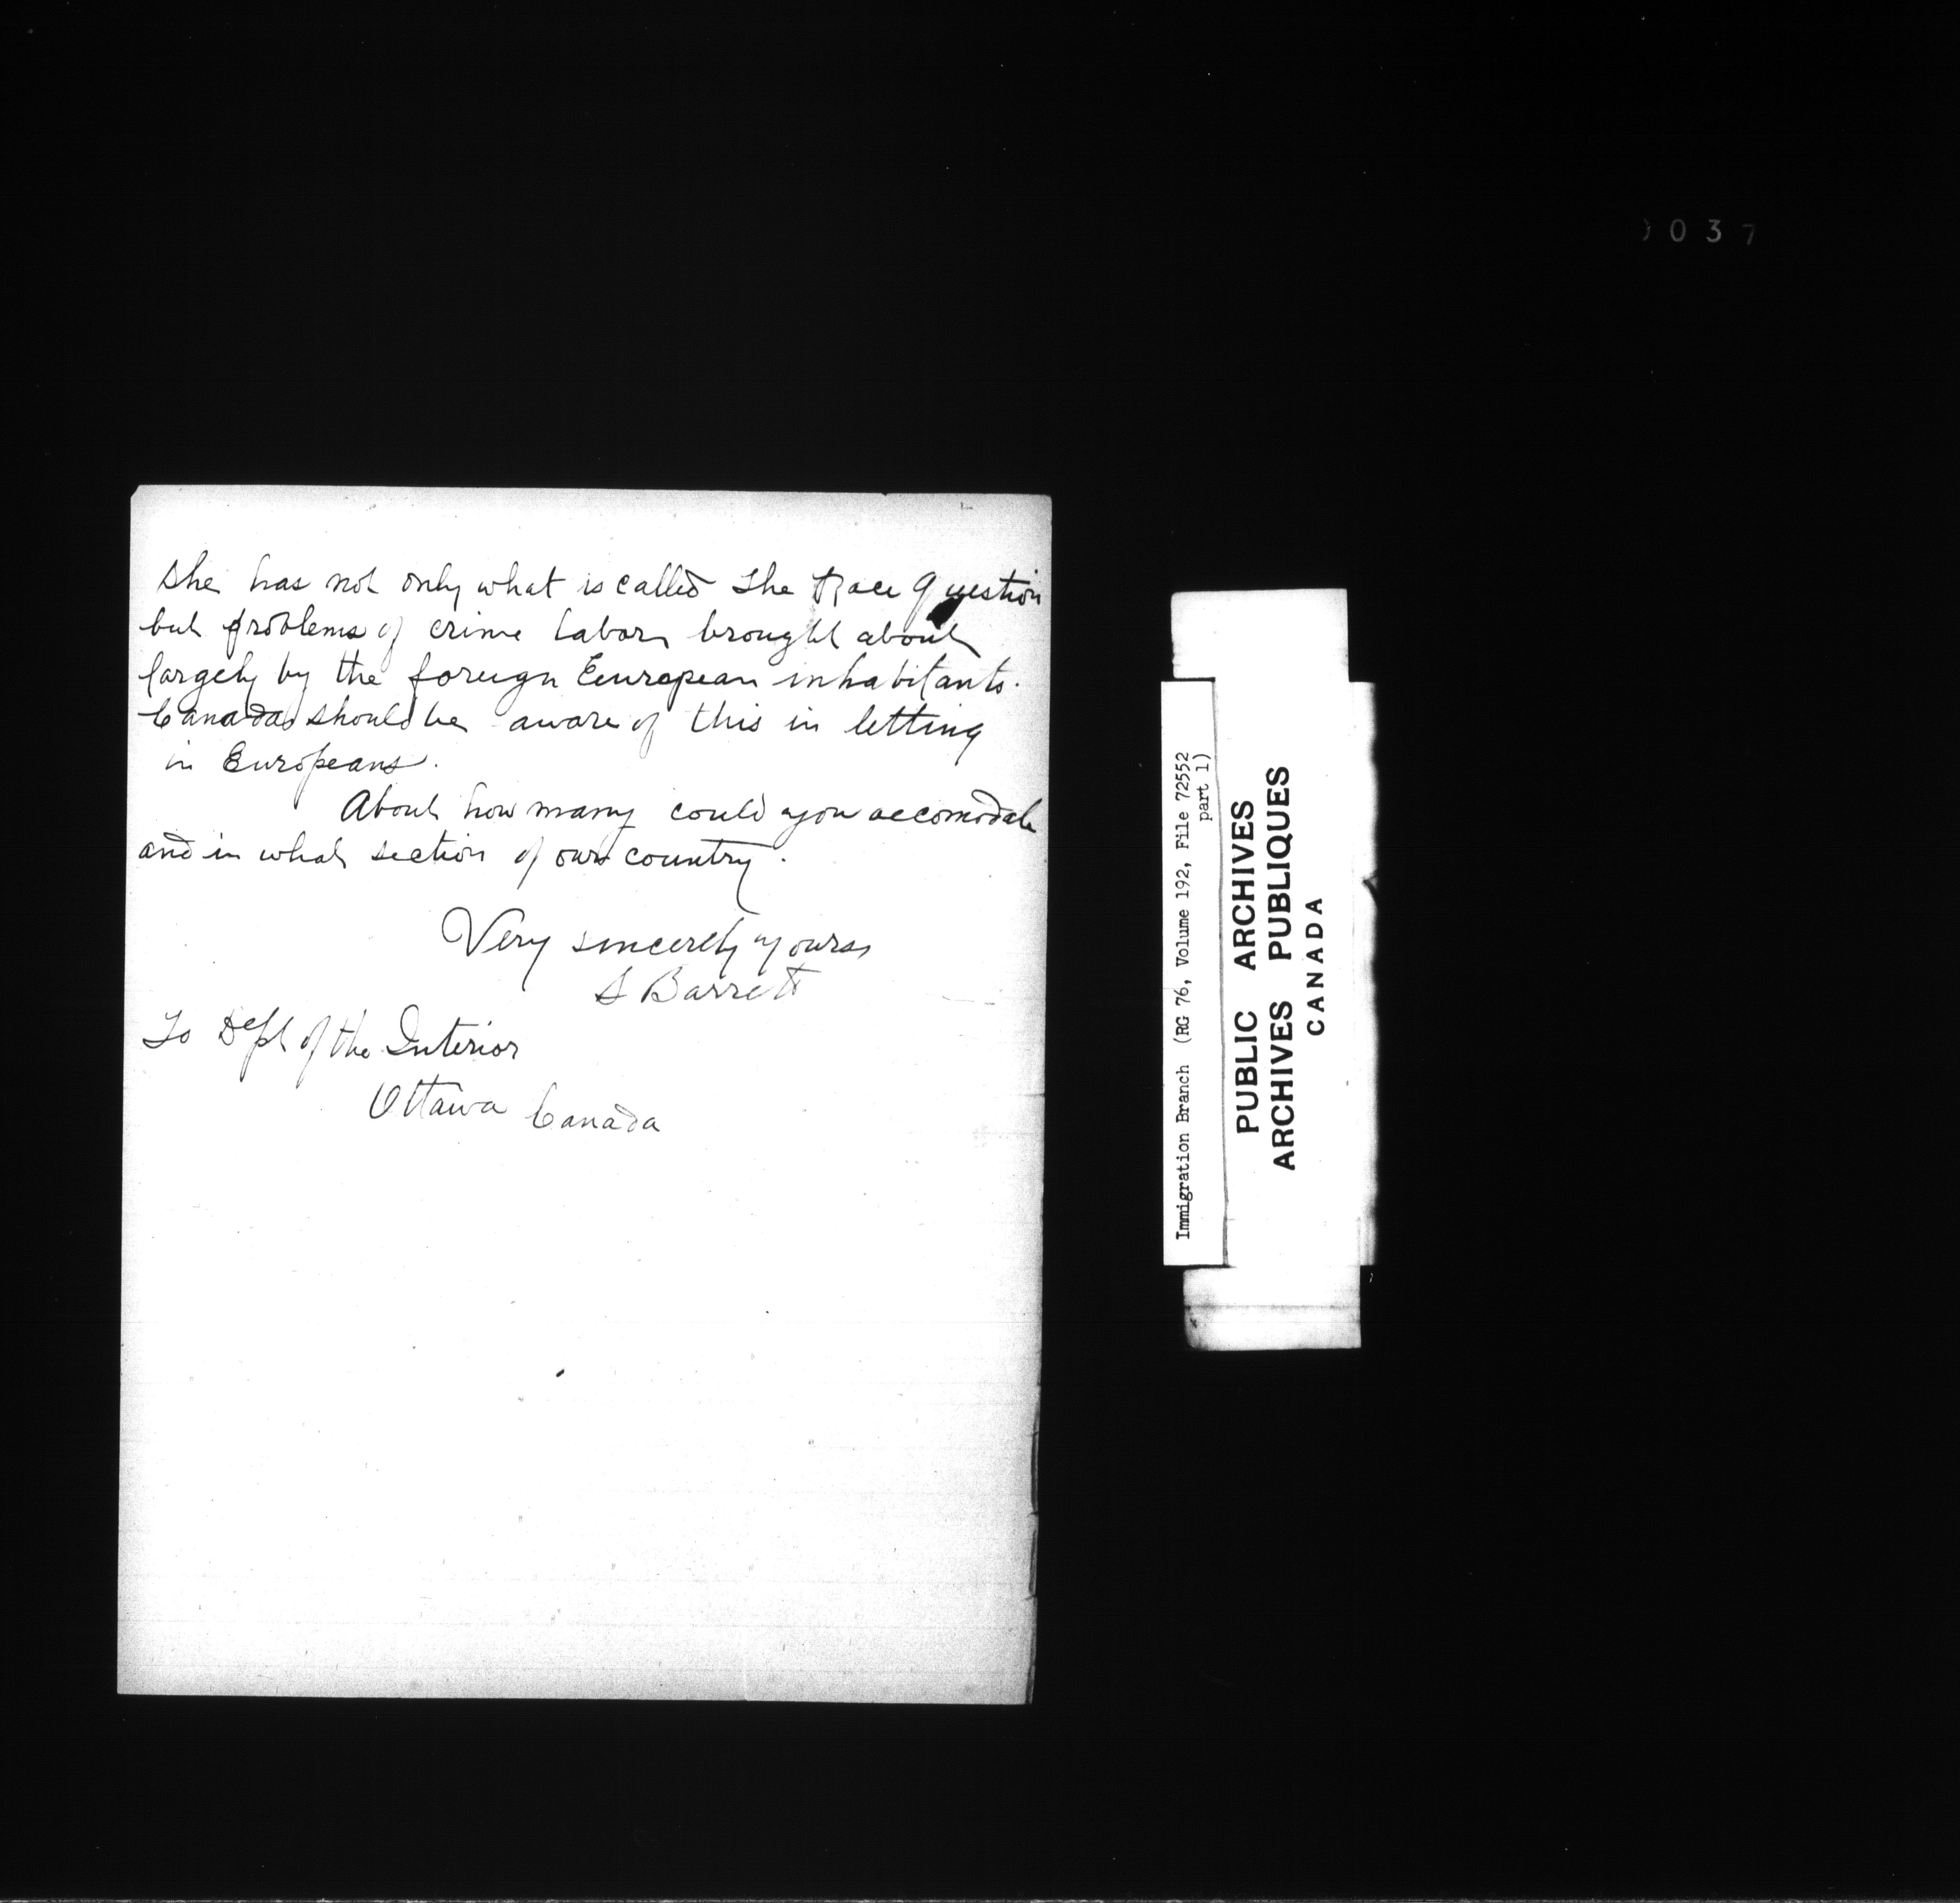 she has not only what is called the Race Question
but problems of crime labor brought about
largely by the foreign European inhabitants.
Canada should be aware of this in letting
in Europeans.
About how many could you accomodate
and in what section of our country.
Very sincerely yours
S Barrett
To Dept of the Interior
Ottawa Canada
Immigration Branch (RG 76, Volume 192, File 72552
part 1)
PUBLIC ARCHIVES
ARCHIVES PUBLIQUES
CANADA
037